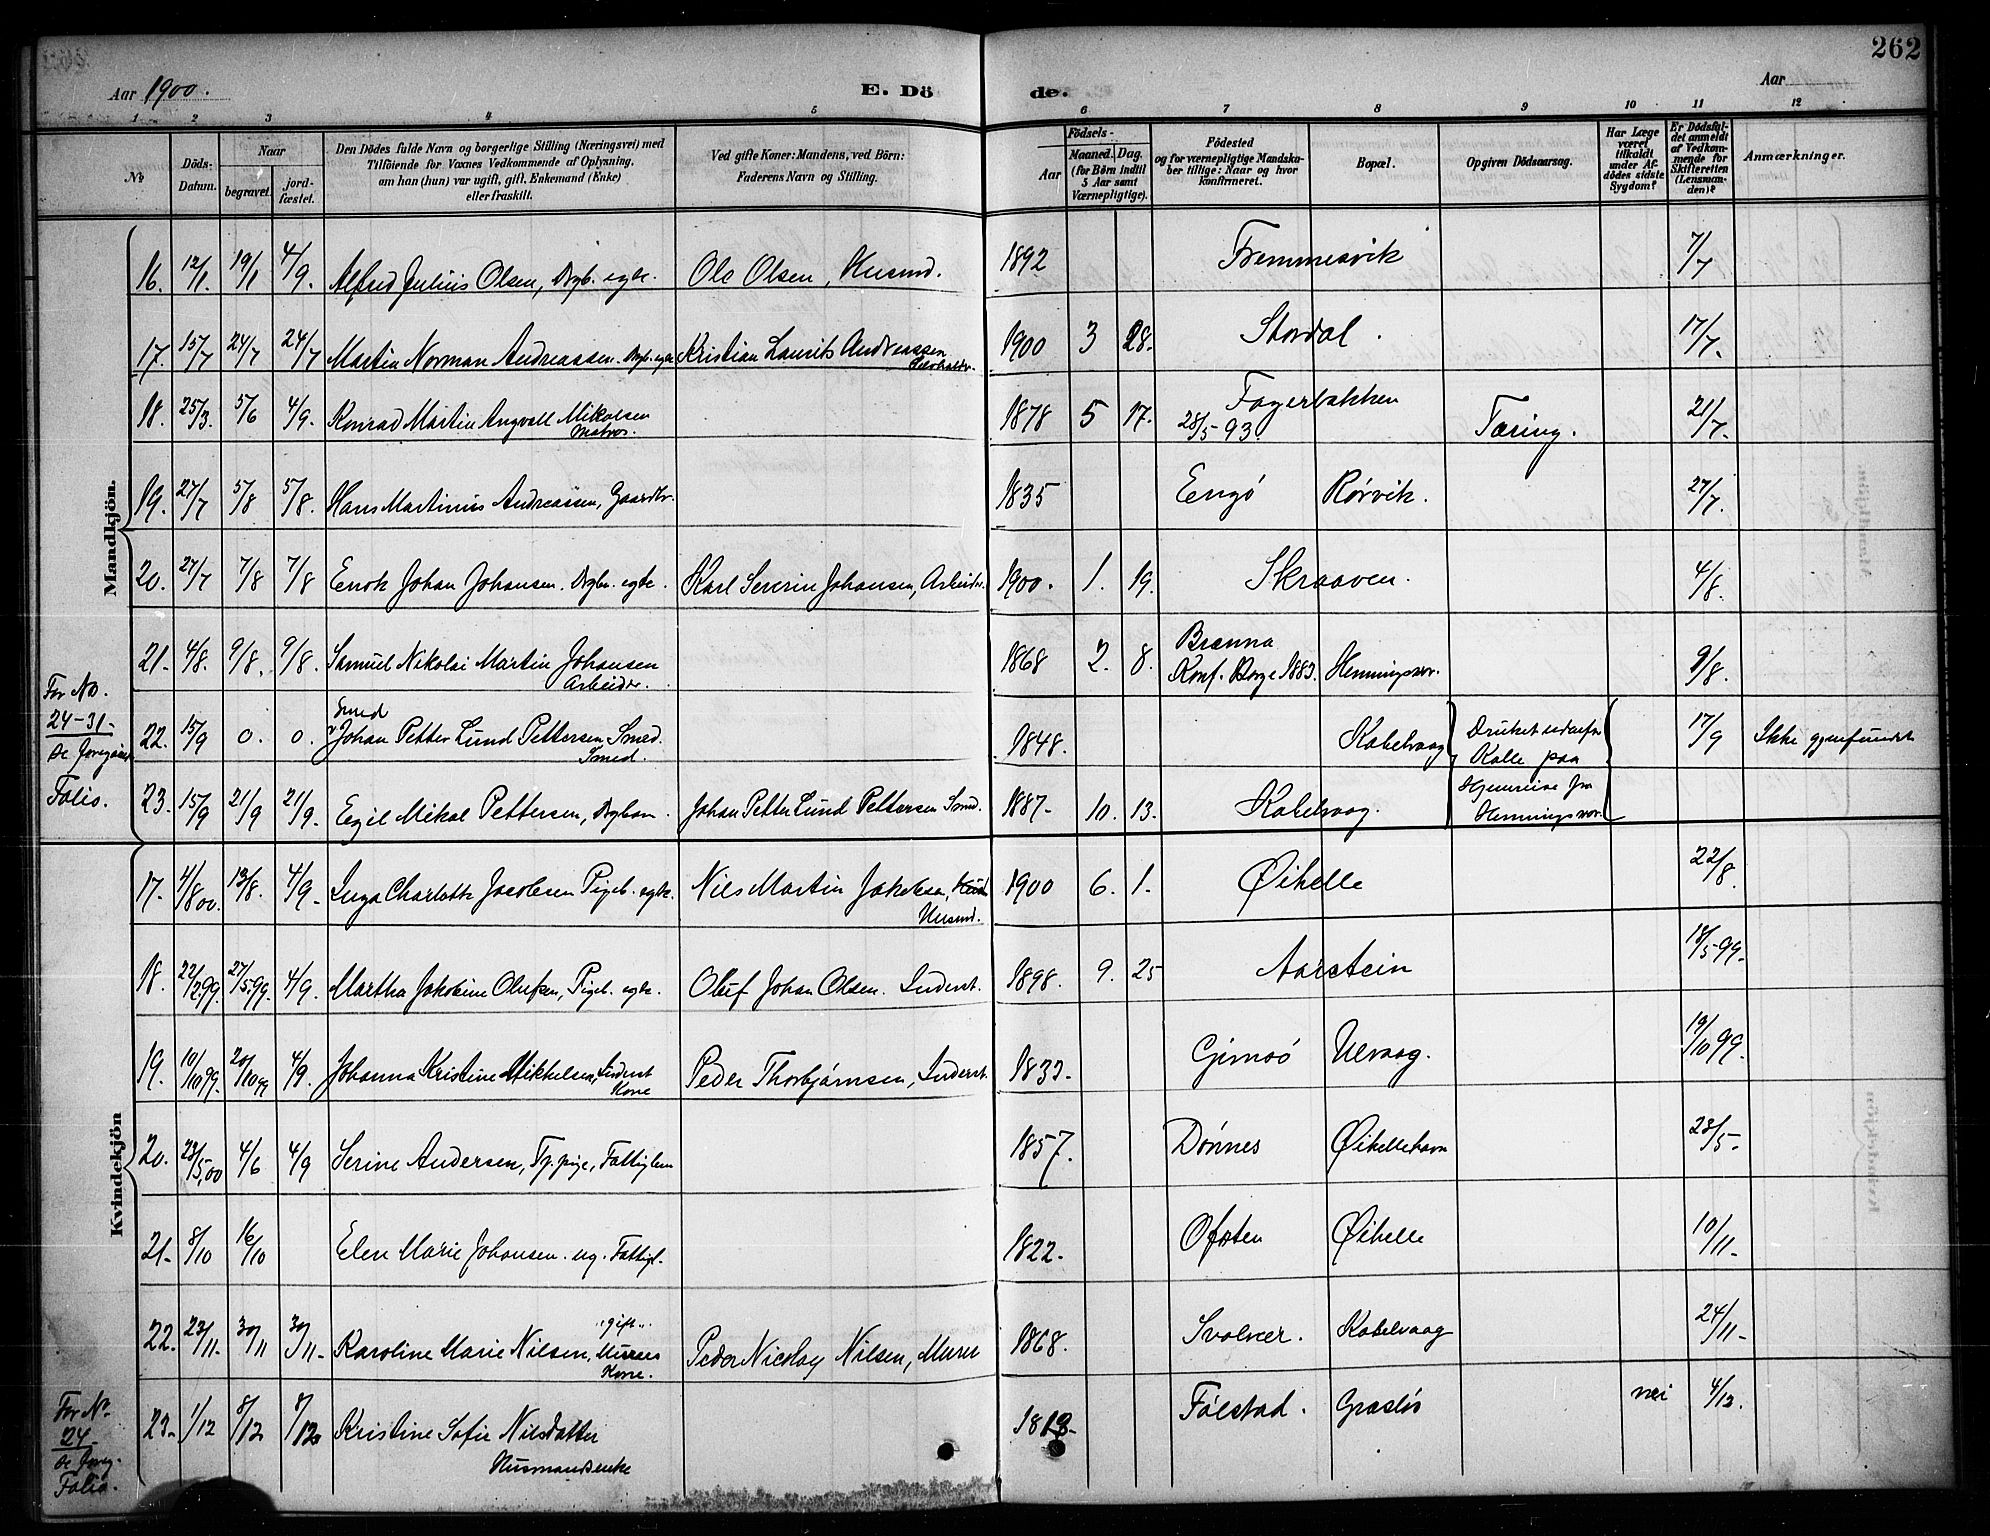 262
Aar 1900.
E. Dö
de.
Aar
1 2 3 4 5 6 7 8 9 10 11 12
No
Döds-
Datum.
Naar
begravet.
jord-
fæstet.
Den Dödes fulde Navn og borgerlige Stilling (Næringsvei) med
Tilföiende for Voxnes Vedkommende af Oplysning,
om han (hun) var ugift, gift, Enkemand (Enke)
eller fraskilt.
Ved gifte Koner: Mandens, ved Börn:
Faderens Navn og Stilling.
Födsels-
Aar
Maaned. Dag.
(for Börn indtil
5 Aar samt
Værnepligtige).
Födested
og for værnepligtige Mandska-
ber tillige: Naar og hvor
konfirmeret.
Bopæl.
Opgiven Dödsaarsag.
Har Læge
været
tilkaldt
under Af-
dödes sidste
Sygdom?
Er Dödsfal-
det anmeldt
af Vedkom-
mende for
Skifteretten
(Lensman-
den)?
Anmærkninger.
Mandkjön.
16. 12/1. 19/1 4/9. Alfred Julius Olsen, Drgb. egte. Ole Olsen, Husmd. 1892 Fremmesvik 7/7
17. 15/7 24/7 24/7 Martin Norman Andreassen. Drgb. egte Kristian Laurits Andreassen 1900 3 28. Stordal. 17/7.
18. 25/3. 5/6 4/9. Konrad Martin Angvall Mikalsen
Matros.
1878 5 17. Fagerbakken
28/5-93.
Tæring. 21/7.
19. 27/7 5/8 5/8. Hans Martinus Andreassen, Gaardbr. 1835 Engö Rörvik. 27/7.
20. 27/7 7/8 7/8 Enok Johan Johansen. Drgbn. egte. Karl Severin Johansen, Arbeider. 1900. 1. 19. Skraaven. 4/8.
21. 4/8. 9/8. 9/8. Samuel Nikolai Martin Johansen
Arbeider.
1868 2. 8. Brenna
Konf. Borge 1883. Henningsvær. 9/8.
For No.
24-31
se foregaaende
Folio.
22. 15/9 0. 0. Smed
Johan Petter Lund Pettersen Smed.
Smed.
1848. Kabelvaag Druknet udenfor
Kalle paa
17/9 Ikke gjenfundet
23. 15/9 21/9 21/9. Egil Mikal Pettersen, Drgbarn. Johan Petter Lund Pettersen Smed. 1887. 10. 13. Kabelvaag. Hjemreise fra
Henningsvær.
Kvindekjön
17. 4/8 00. 13/8. 4/9. Inga Charlotte Jacobsen Pigeb. egte. Nils Martin Jakobsen,
Husmd.
1900 6. 1. Öihelle 22/8.
18. 22/2.99. 27/5.99. 4/9. Martha Jakobine Olufsen, Pigeb. egte. Oluf Johan Olsen. Inderst. 1898. 9. 25 Aarstein 18/5-99.
19. 10/10 99. 20/10 99 4/9. Johanna Kristine Mikkelsen, Inderst
Kone
Peder Thorbjörnsen, Inderst. 1833. Gimsö Ulvaag. 19/10 99.
20. 28/5.00 4/6 4/9 Serine Andersen, Tj. pige, Fattiglem 1857. Dönnes Öihellehavn 28/5-
21. 8/10 16/10 Elen Marie Johansen. ug. Fattigl. 1822. Ofoten Öihelle 10/11-
22. 23/11. 30/11 30/11. gift
Karoline Marie Nilsen, Murers
Kone.
Peder Nicolay Nilsen, Murer 1868. Svolvær. Kabelvaag 24/11-
For No.
24
se foreg.
Folio.
23. 1/12 8/12 8/12 Kristine Sofie Nilsdatter
Husmandsenke
Fölstad. nei 4/12.